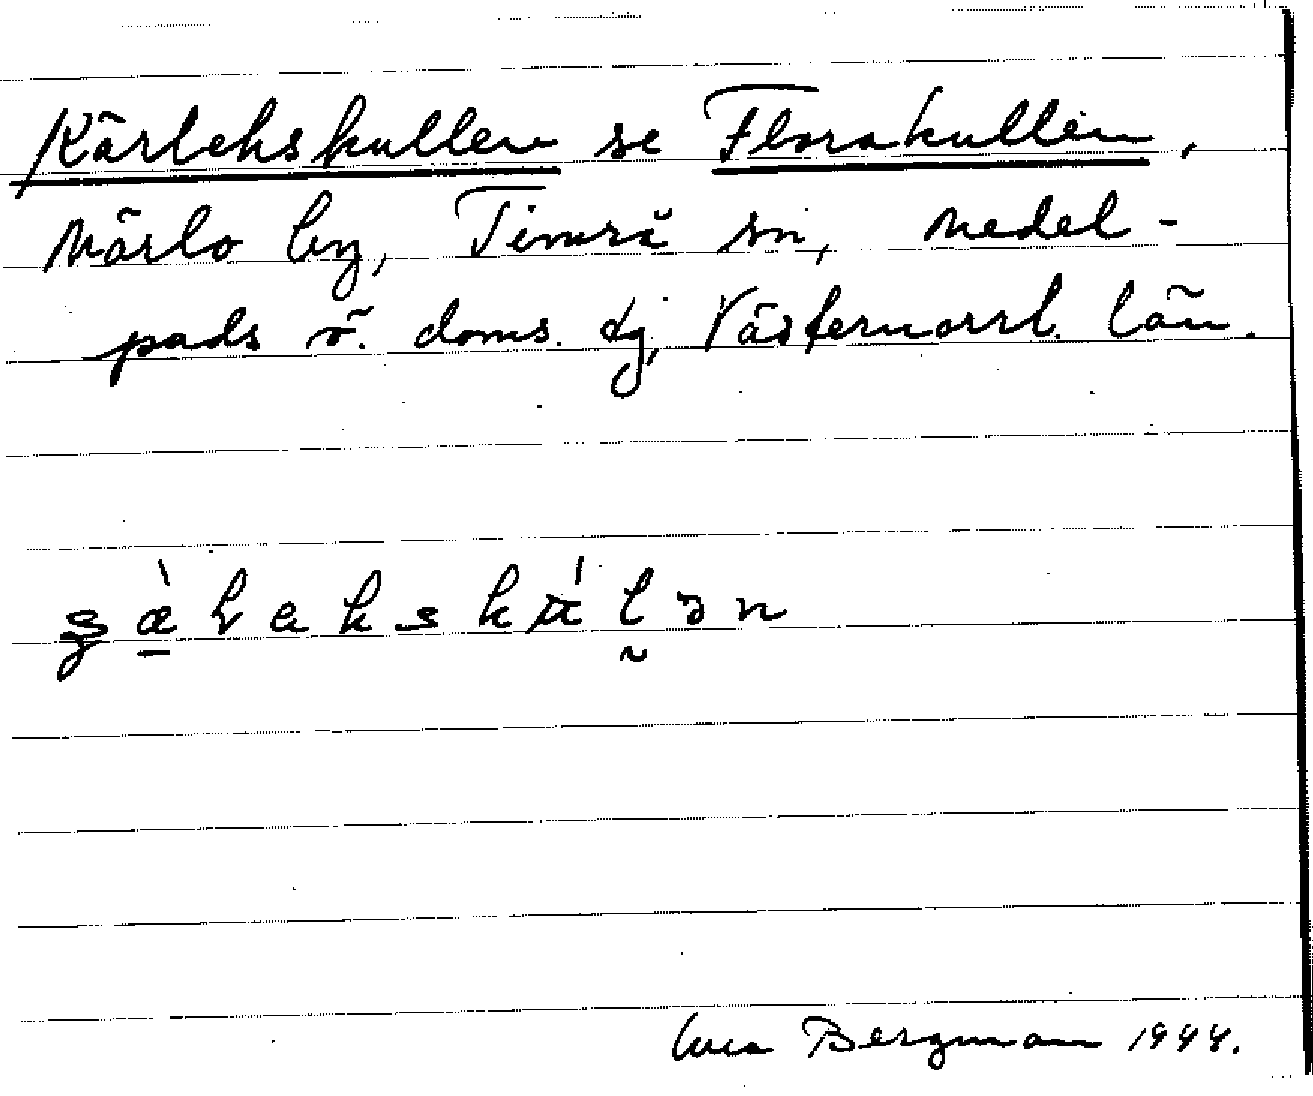 Kärlekskullen se Florakullen,
Märlo by, Timrå sn, Medel-
pads ö. doms. dg, Västernorrl. län.
Bergman 1944.